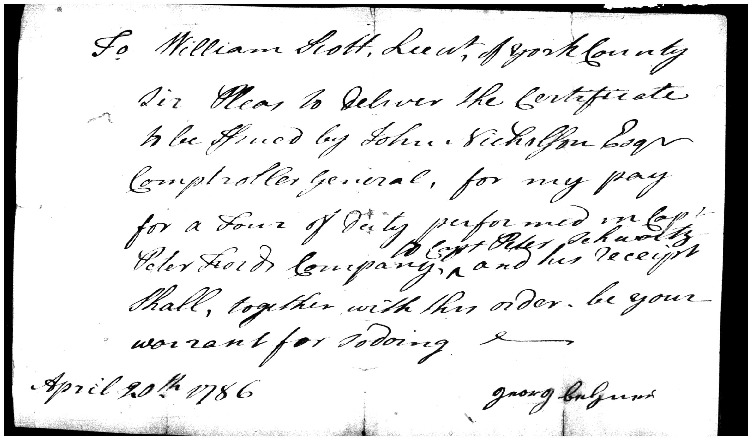 To William Scott, Lieut, of York County
Sir Pleas to Deliver the Certificate
to be Issued by John Nicholson Esqr
Comptroller General, for my pay
for a Tour of Duty performed in Capt
to Capt Peter Schwartz
Peter Fords Company, ^ and his receipt
Shall, together with this order. be your
warrant for so doing
April 20th 1786
georg